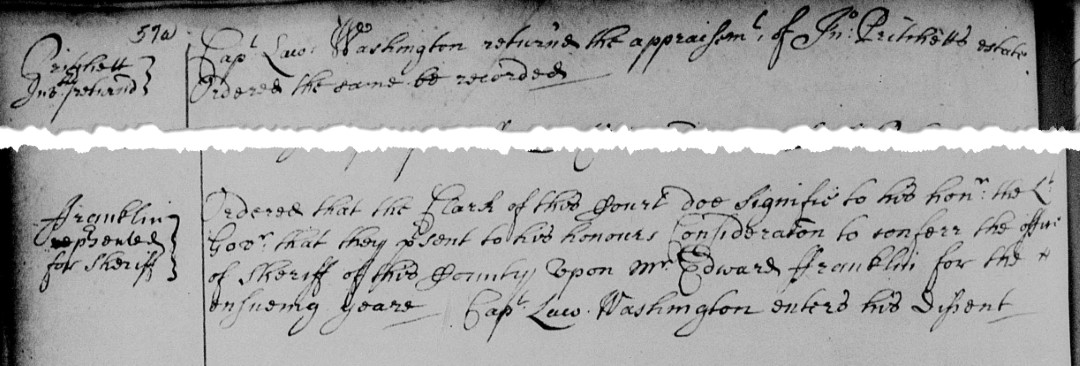 57a
Pritchett
Inv:try returnd
Capt. Law: Washington returned the appraisemt. of Jno: Pritchetts estate.
Ordered the same be recorded
Franklin
rep'sented
for Sheriff
Ordered that the Clark of this Court doe signifie to his honr: the Lt:
Govr. that they p'sent to his honours Consideraton to conferr the offic:
of Sheriff of this County Upon Mr. Edward Franklin for the
ensueing yeare Capt. Law. Washington enters his Dissent